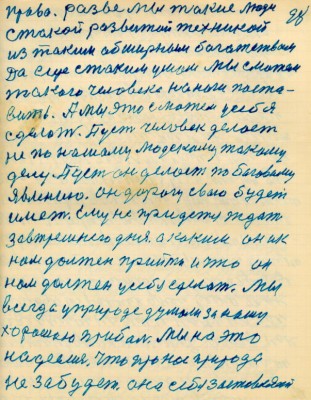 права. разве мы такие люди 28
с такой развитой техникой
из таким обширным богатством
Да еще с таким умом мы сможем
такого человека на ноги поста-
вить. А мы это сможем у себя
сделать. Пусть человек делает
не по нашому людскому такому
делу. Пуст он делает по боговому
явлению. он дорогу свою будет
имет. Ему не прийдется ждат
завтрешнего дня. а каким он ик
нам должен прийти и что он
нам должен у себя сделат. Мы
всегда у природе думали за нашу
хорошаю прибал. Мы на это
надеемся, что про нас природа
не забудет. она себя заставляяй